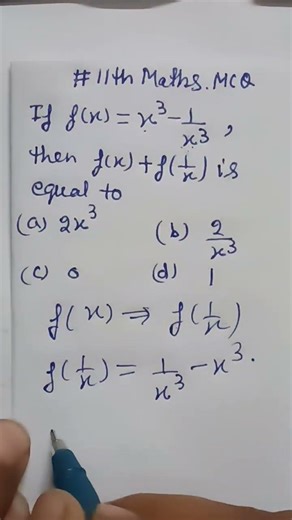 #11th Maths.MCQ
If f(x) = x³ - 1/x³,
then f(x) + f(1/x) is
equal to
(a) 2x³ (b) 2/x³
(c) 0 (d) 1
f(x) ⇒ f(1/x)
f(1/x) = 1/x³ - x³.